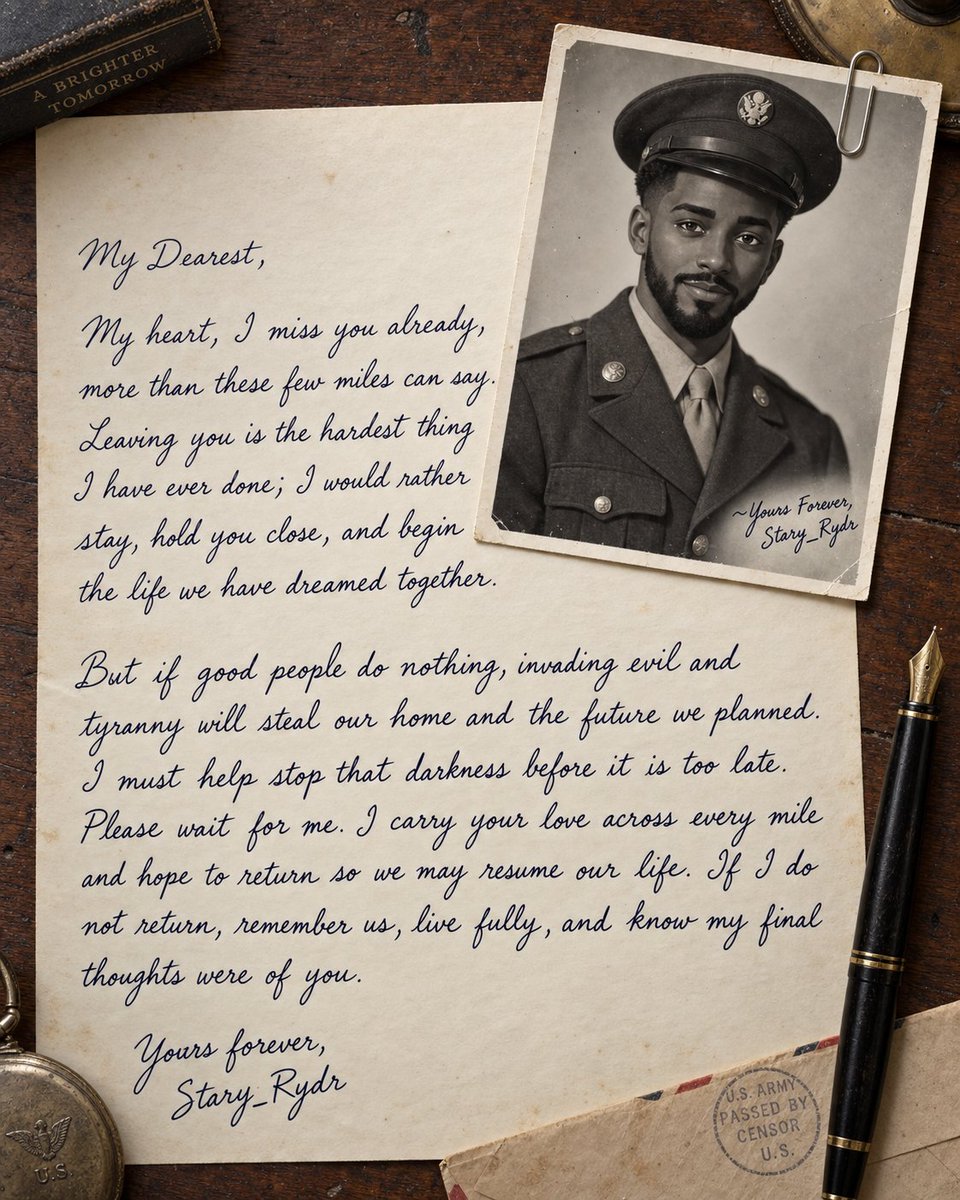 A BRIGHTER
TOMORROW
My Dearest,
My heart, I miss you already,
more than these few miles can say.
Leaving you is the hardest thing
I have ever done; I would rather
stay, hold you close, and begin
the life we have dreamed together.
But if good people do nothing, invading evil and
tyranny will steal our home and the future we planned.
I must help stop that darkness before it is too late.
Please wait for me. I carry your love across every mile
and hope to return so we may resume our life. If I do
not return, remember us, live fully, and know my final
thoughts were of you.
Yours forever,
Stary_Rydr
~Yours Forever,
Stary_Rydr
U.S.
U.S. ARMY
PASSED BY
CENSOR
U.S.